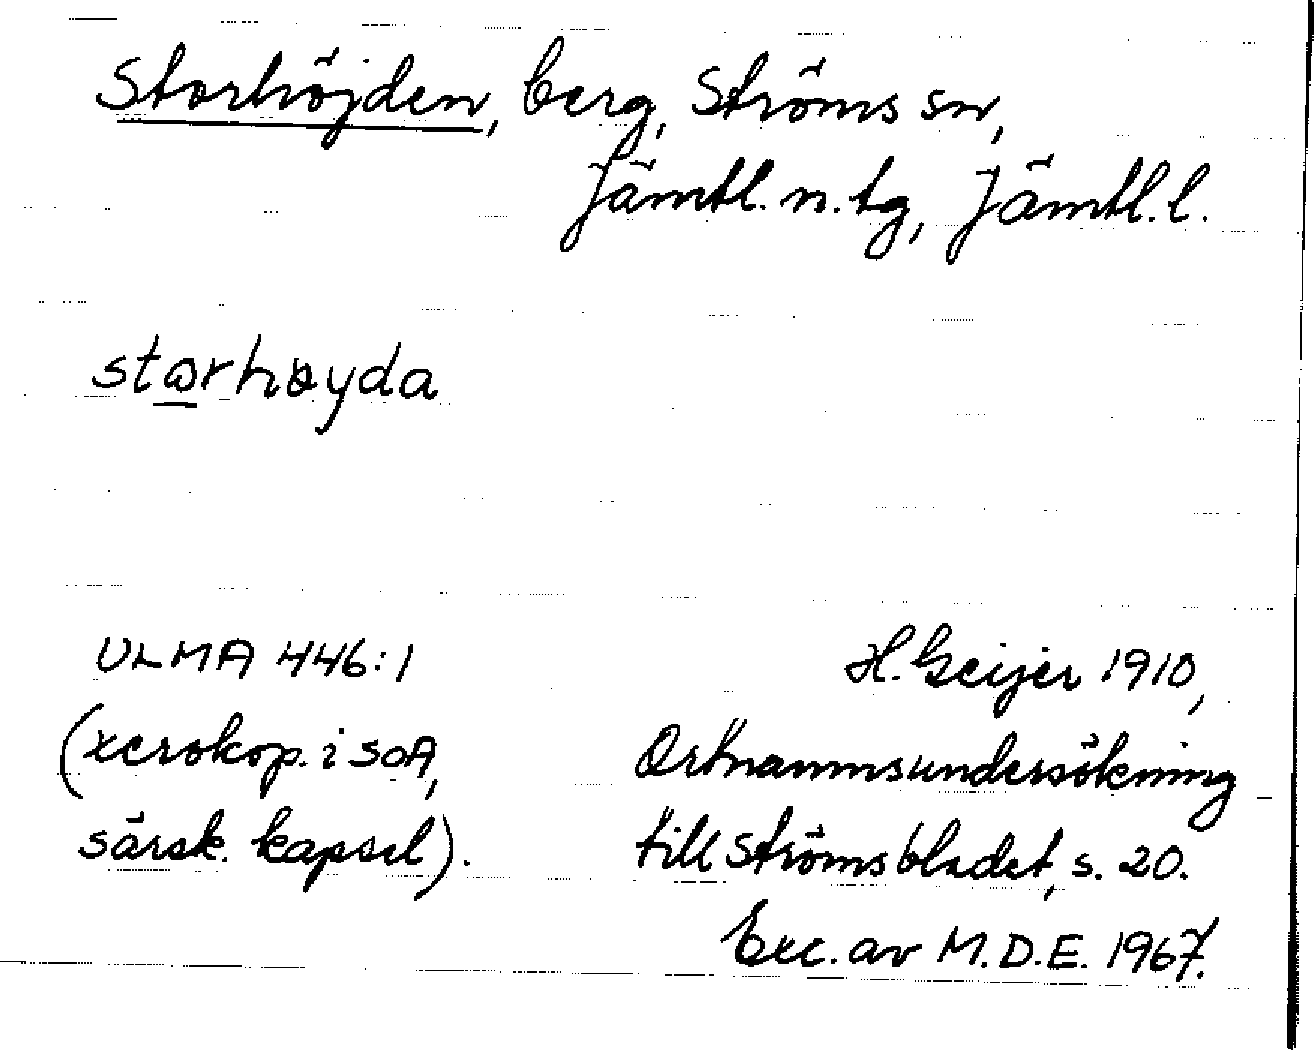 Storhöjden, berg, Ströms sn,
Jämtl. n. tg, Jämtl. l.
storhøyda
ULMA 446:1
(xerokop. i SOA,
särsk. kapsel).
H. Geijer 1910,
Ortnamnsundersökning
till Strömsbladet, s. 20.
Exc. av M.D.E. 1967.